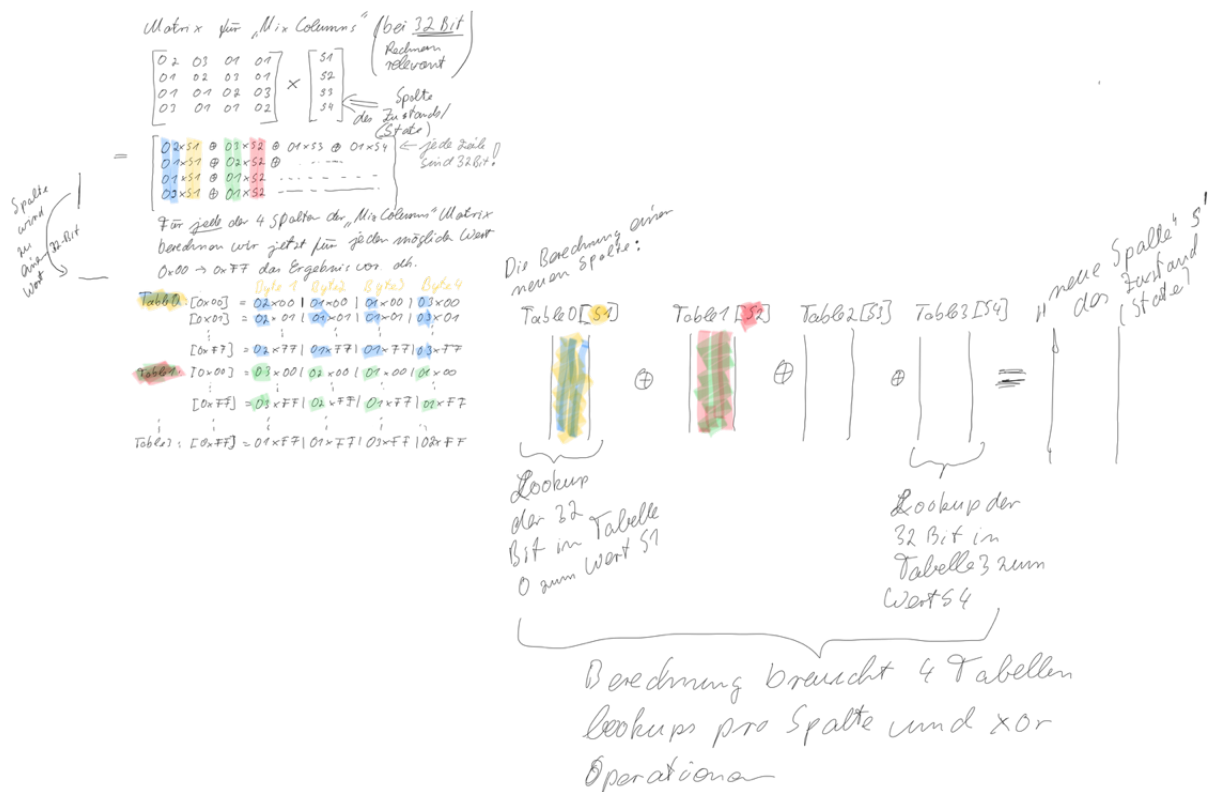 Matrix für „Mix Columns" (bei 32 Bit
Rechnern
relevant)
02 03 01 01
01 02 03 01
01 01 02 03
03 01 01 02
×
S1
S2
S3
S4
Spalte
des Zustands/
(State)
=
02×S1 ⊕ 03×S2 ⊕ 01×S3 ⊕ 01×S4
01×S1 ⊕ 02×S2 ⊕
01×S1 ⊕ 01×S2
03×S1 ⊕ 01×S2
← jede Zeile
sind 32Bit!
Spalte
wird
zu
einem 32-Bit
Wort
Für jede der 4 Spalten der „Mix Columns" Matrix
berechnen wir jetzt für jeden möglichen Wert
0x00 → 0xFF das Ergebnis vor. dh.
Byte 1 Byte2 Byte3 Byte4
Table0: [0x00] = 02×00 | 01×00 | 01×00 | 03×00
[0x01] = 02×01 | 01×01 | 01×01 | 03×01
[0xFF] = 02×FF | 01×FF | 01×FF | 03×FF
Table1: [0x00] = 03×00 | 02×00 | 01×00 | 01×00
[0xFF] = 03×FF | 02×FF | 01×FF | 01×FF
Table3: [0xFF] = 01×FF | 01×FF | 03×FF | 02×FF
Die Berechnung einer
neuen Spalte:
Table0[S1] Table1[S2] Table2[S3] Table3[S4]
⊕ ⊕ ⊕ =
„neue Spalte" S'
des Zustand
(State)
Lookup
der 32
Bit in Tabelle
0 zum Wert S1
Lookup der
32 Bit in
Tabelle 3 zum
Wert S4
Berechnung braucht 4 Tabellen
lookups pro Spalte und xor
Operationen